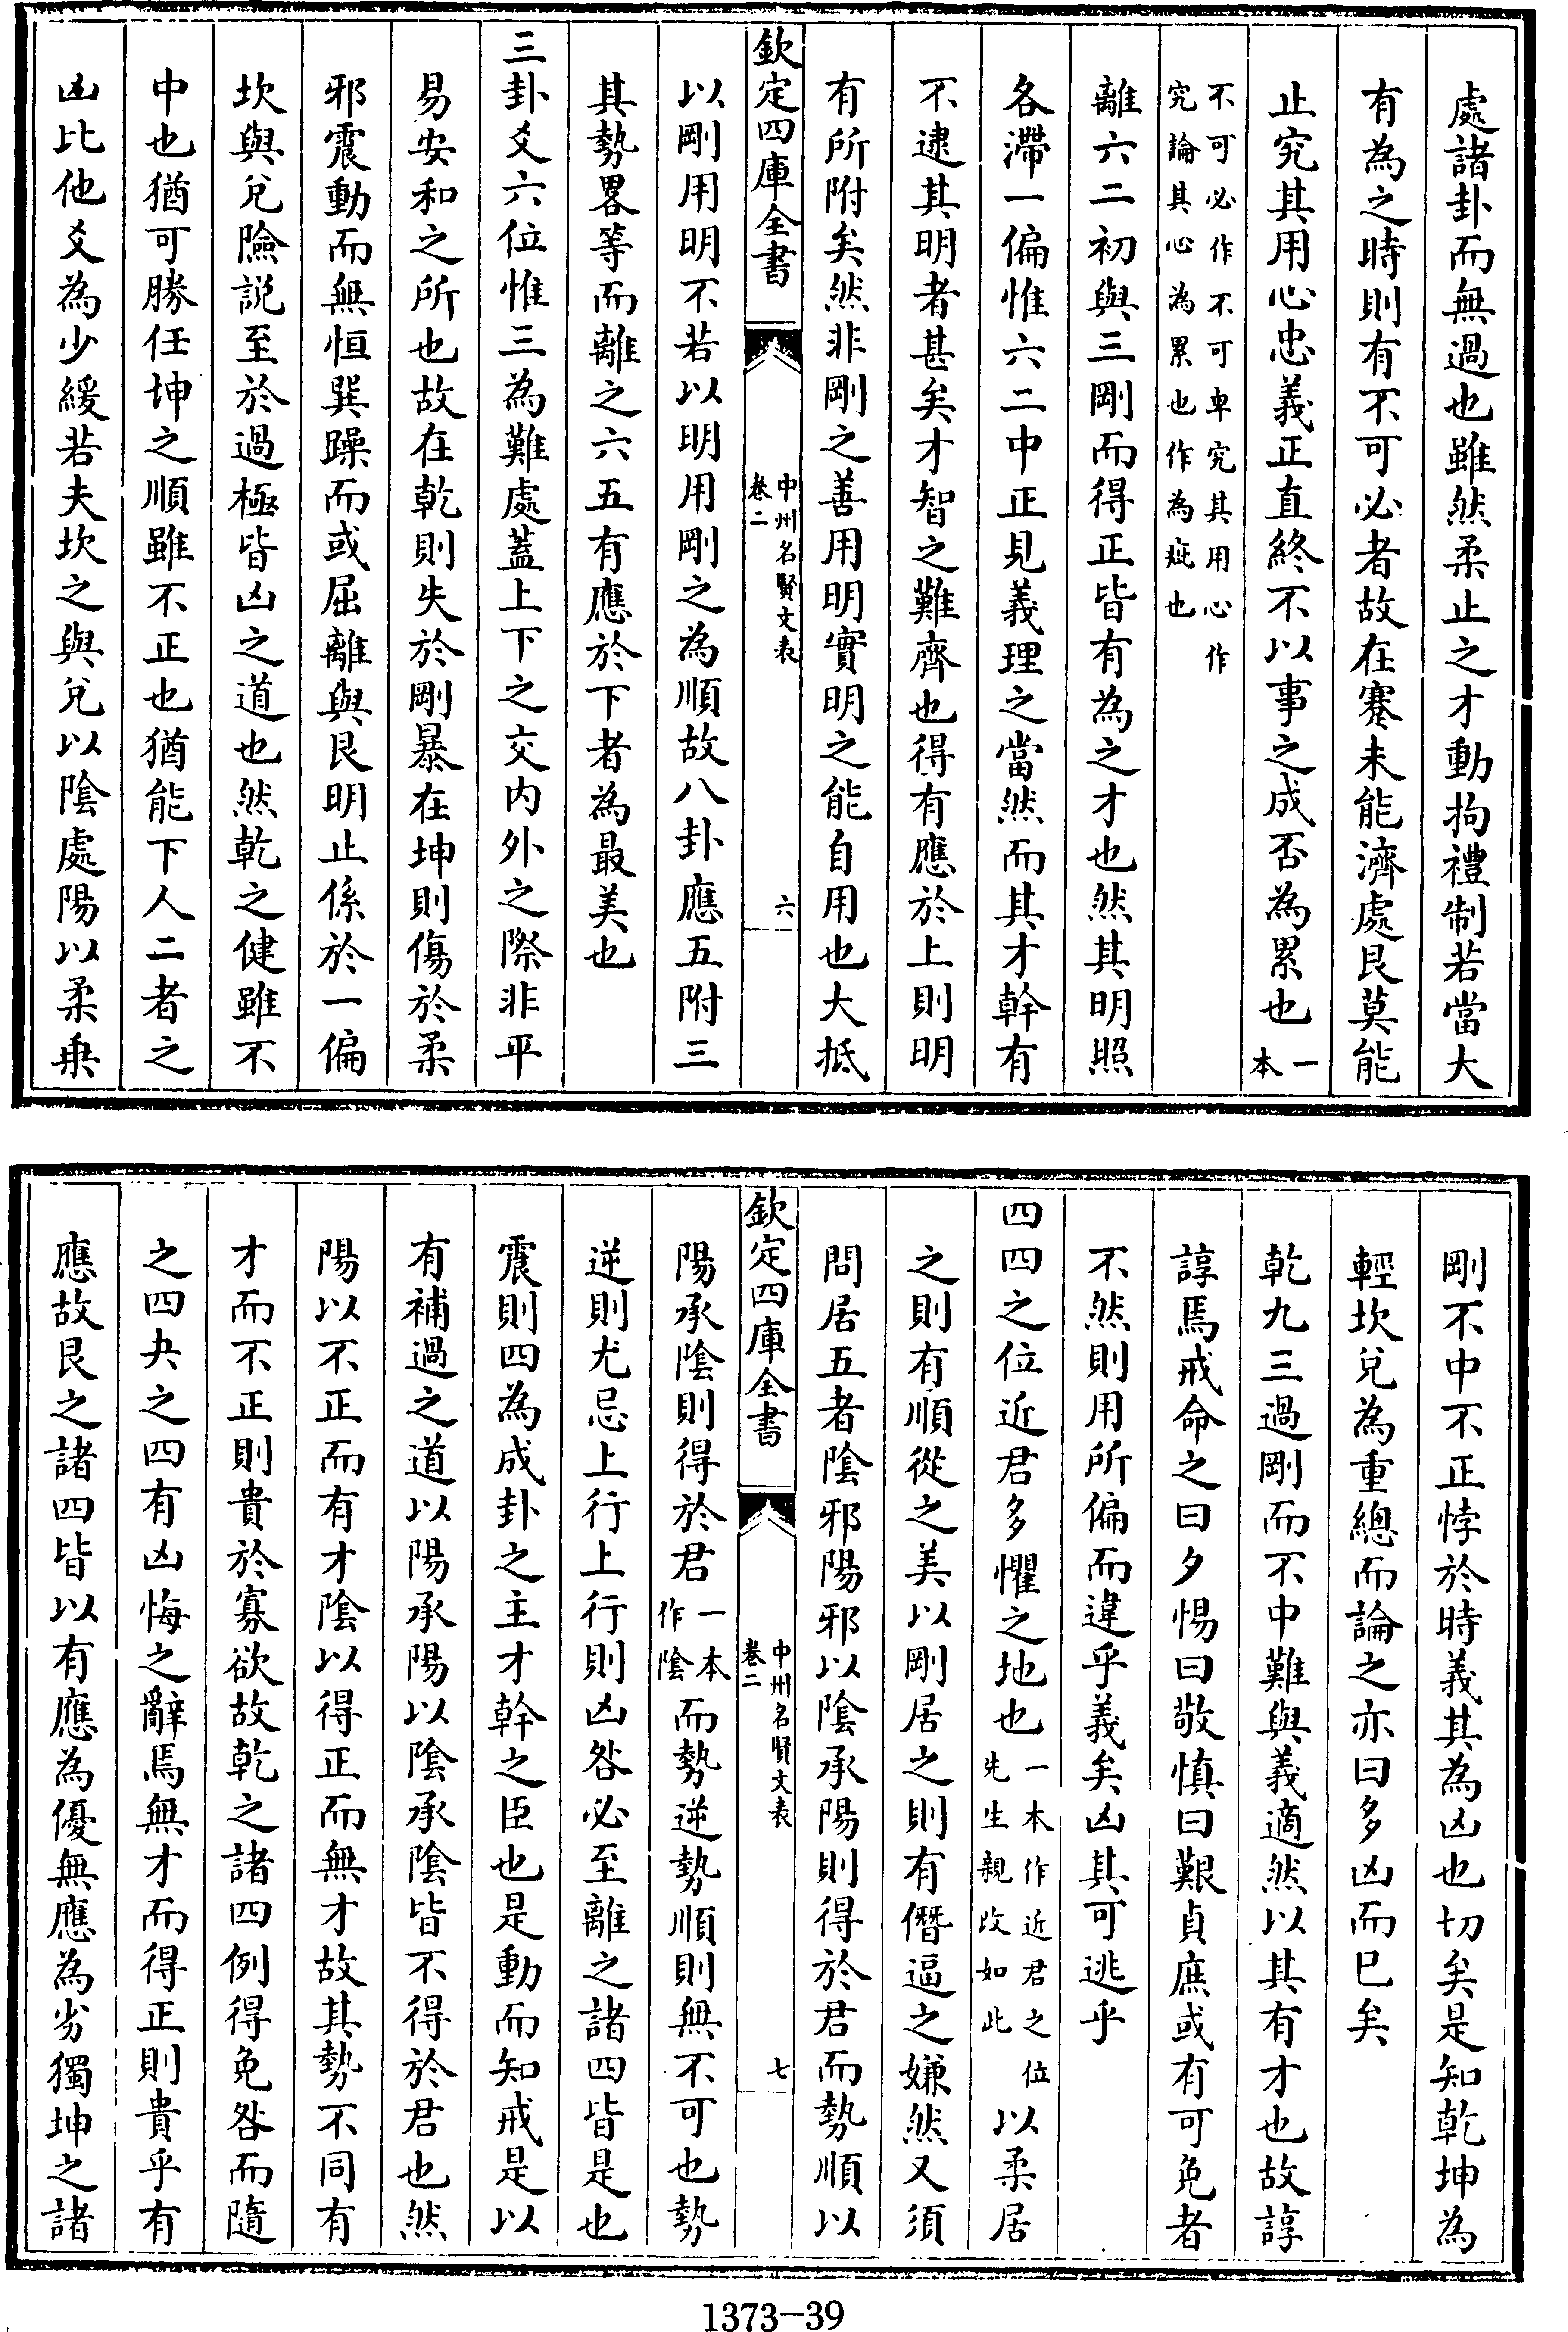 處諸卦而無過也雖然柔止之才動拘禮制若當大
有為之時則有不可必者故在蹇未能濟處艮莫能
止究其用心忠義正直終不以事之成否為累也一本
不可必作不可卑究其用心作
究論其心為累也作為疵也
離六二初與三剛而得正皆有為之才也然其明照
各滯一偏惟六二中正見義理之當然而其才幹有
不逮其明者甚矣才智之難齊也得有應於上則明
有所附矣然非剛之善用明實明之能自用也大抵
欽定四庫全書
中州名賢文表
卷二
六
以剛用明不若以明用剛之為順故八卦應五附三
其勢畧等而離之六五有應於下者為最美也
三卦爻六位惟三為難處蓋上下之交内外之際非平
易安和之所也故在乾則失於剛暴在坤則傷於柔
邪震動而無恒巽躁而或屈離與艮明止係於一偏
坎與兌險説至於過極皆凶之道也然乾之健雖不
中也猶可勝任坤之順雖不正也猶能下人二者之
凶比他爻為少緩若夫坎之與兌以陰處陽以柔乗
剛不中不正悖於時義其為凶也切矣是知乾坤為
輕坎兌為重總而論之亦曰多凶而已矣
乾九三過剛而不中難與義適然以其有才也故諄
諄焉戒命之曰夕惕曰敬慎曰艱貞庶或有可免者
不然則用所偏而違乎義矣凶其可逃乎
四四之位近君多懼之地也一本作近君之位先生親改如此以柔居
之則有順從之美以剛居之則有僭逼之嫌然又須
問居五者陰邪陽邪以陰承陽則得於君而勢順以
欽定四庫全書
中州名賢文表
卷二
七
陽承陰則得於君一本作陰而勢逆勢順則無不可也勢
逆則尤忌上行上行則凶咎必至離之諸四皆是也
震則四為成卦之主才幹之臣也是動而知戒是以
有補過之道以陽承陽以陰承陰皆不得於君也然
陽以不正而有才陰以得正而無才故其勢不同有
才而不正則貴於寡欲故乾之諸四例得免咎而隨
之四夬之四有凶悔之辭焉無才而得正則貴乎有
應故艮之諸四皆以有應為優無應為劣獨坤之諸
1373-39